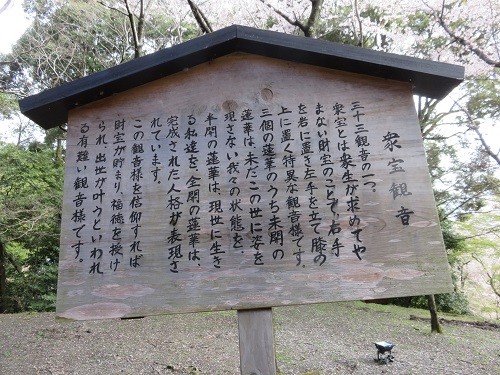 衆宝観音
三十三観音の一つ。
衆宝とは衆生が求めてや
まない財宝のことで、右手
を岩に置き左手を立て膝の
上に置く特異な観音様です。
三個の蓮華のうち未開の
蓮華は、未だこの世に姿を
現さない我々の状態を、
半開の蓮華は、現世に生き
る私達を、全開の蓮華は、
完成された人格が表現さ
れています。
この観音様を信仰すれば
財宝が貯まり、福徳を授け
られ、出世が叶うといわれ
る有難い観音様です。